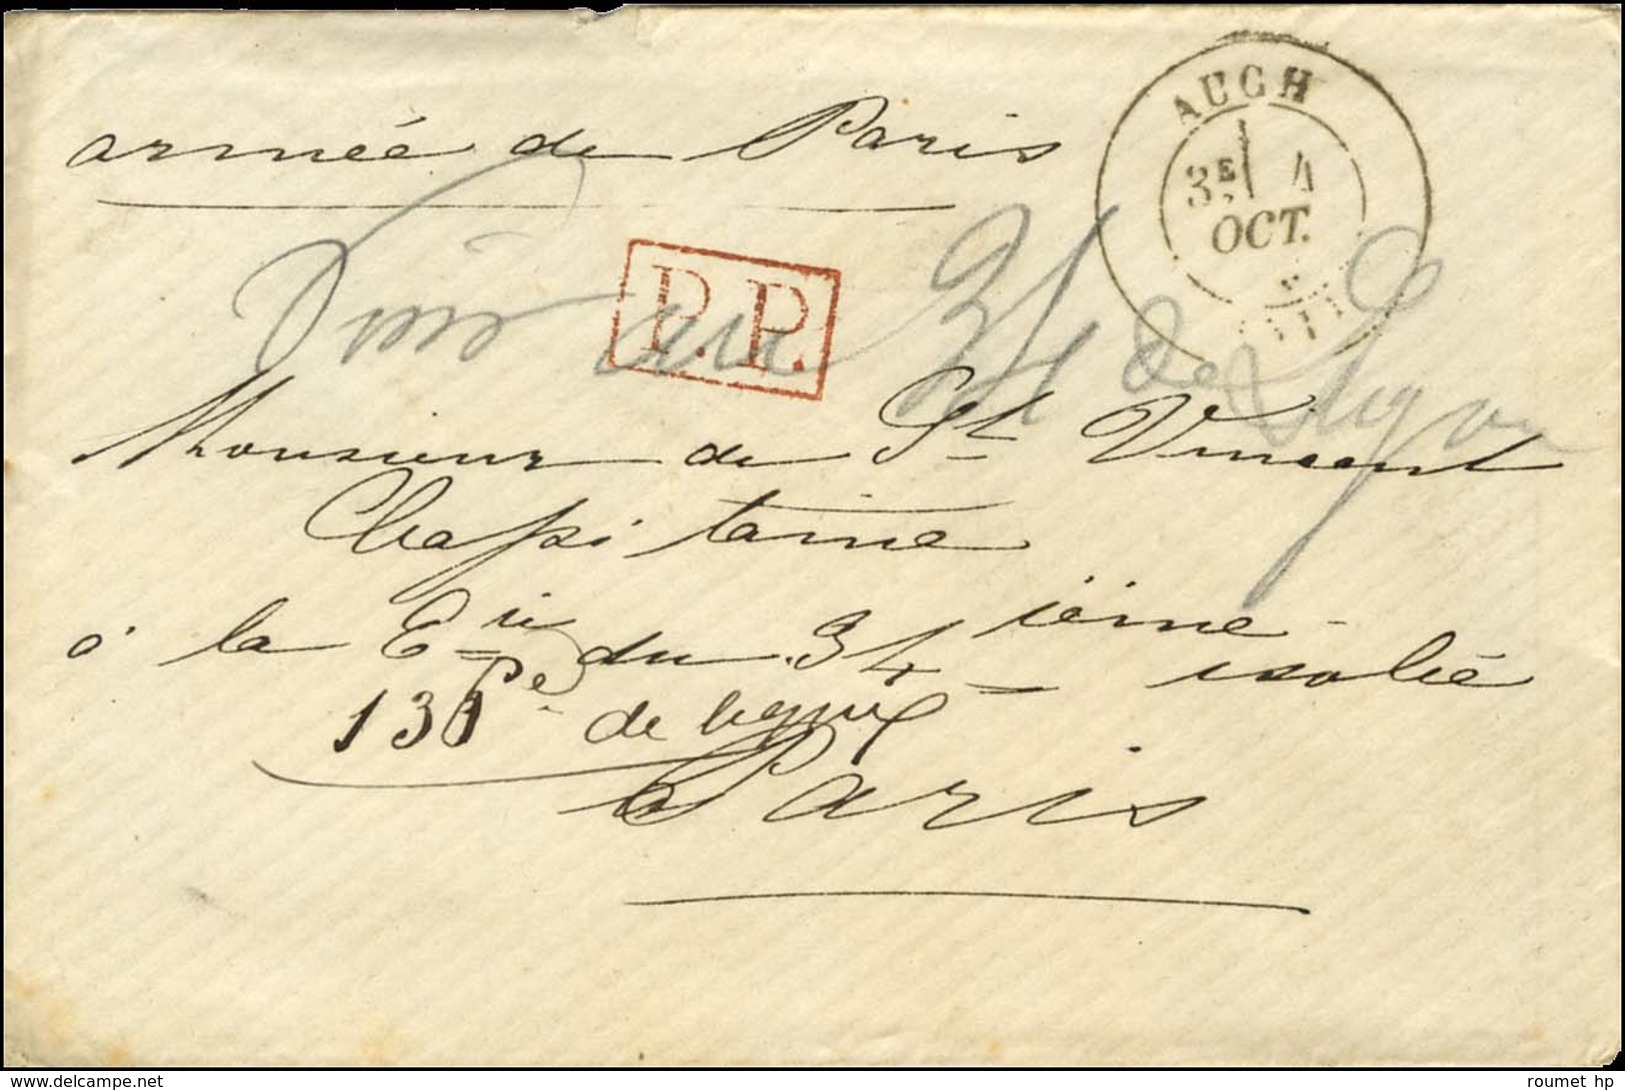 AUCH
3E 4
OCT.
armée de Paris
P.P.
Voir au 31 de Ligne
Monsieur de St Vincent
Chapitaine
à la Cie du 34 ième isolée
131 de ligne
Paris
delcampe.net
roumet hp